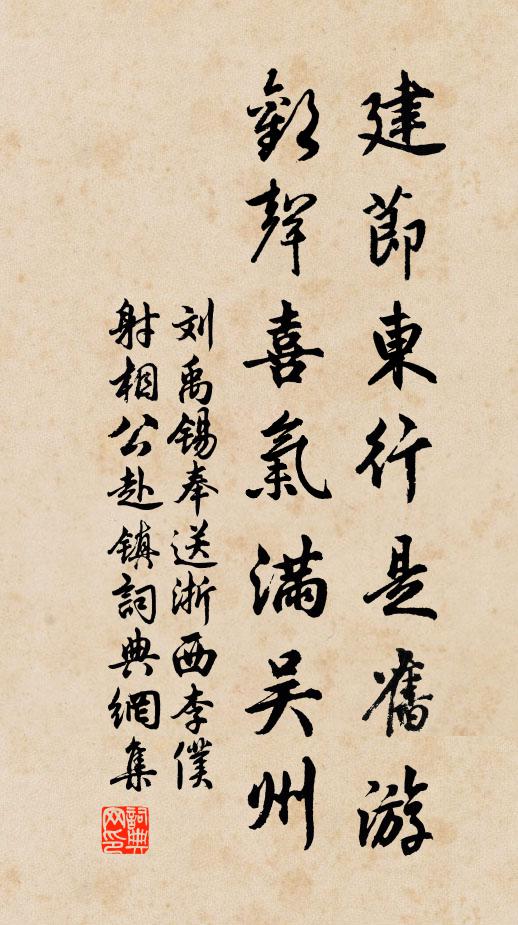 建節東行是舊游
歡聲喜氣滿吴州
刘禹锡奉送浙西李僕
射相公赴镇詞典網集
詞典
网印